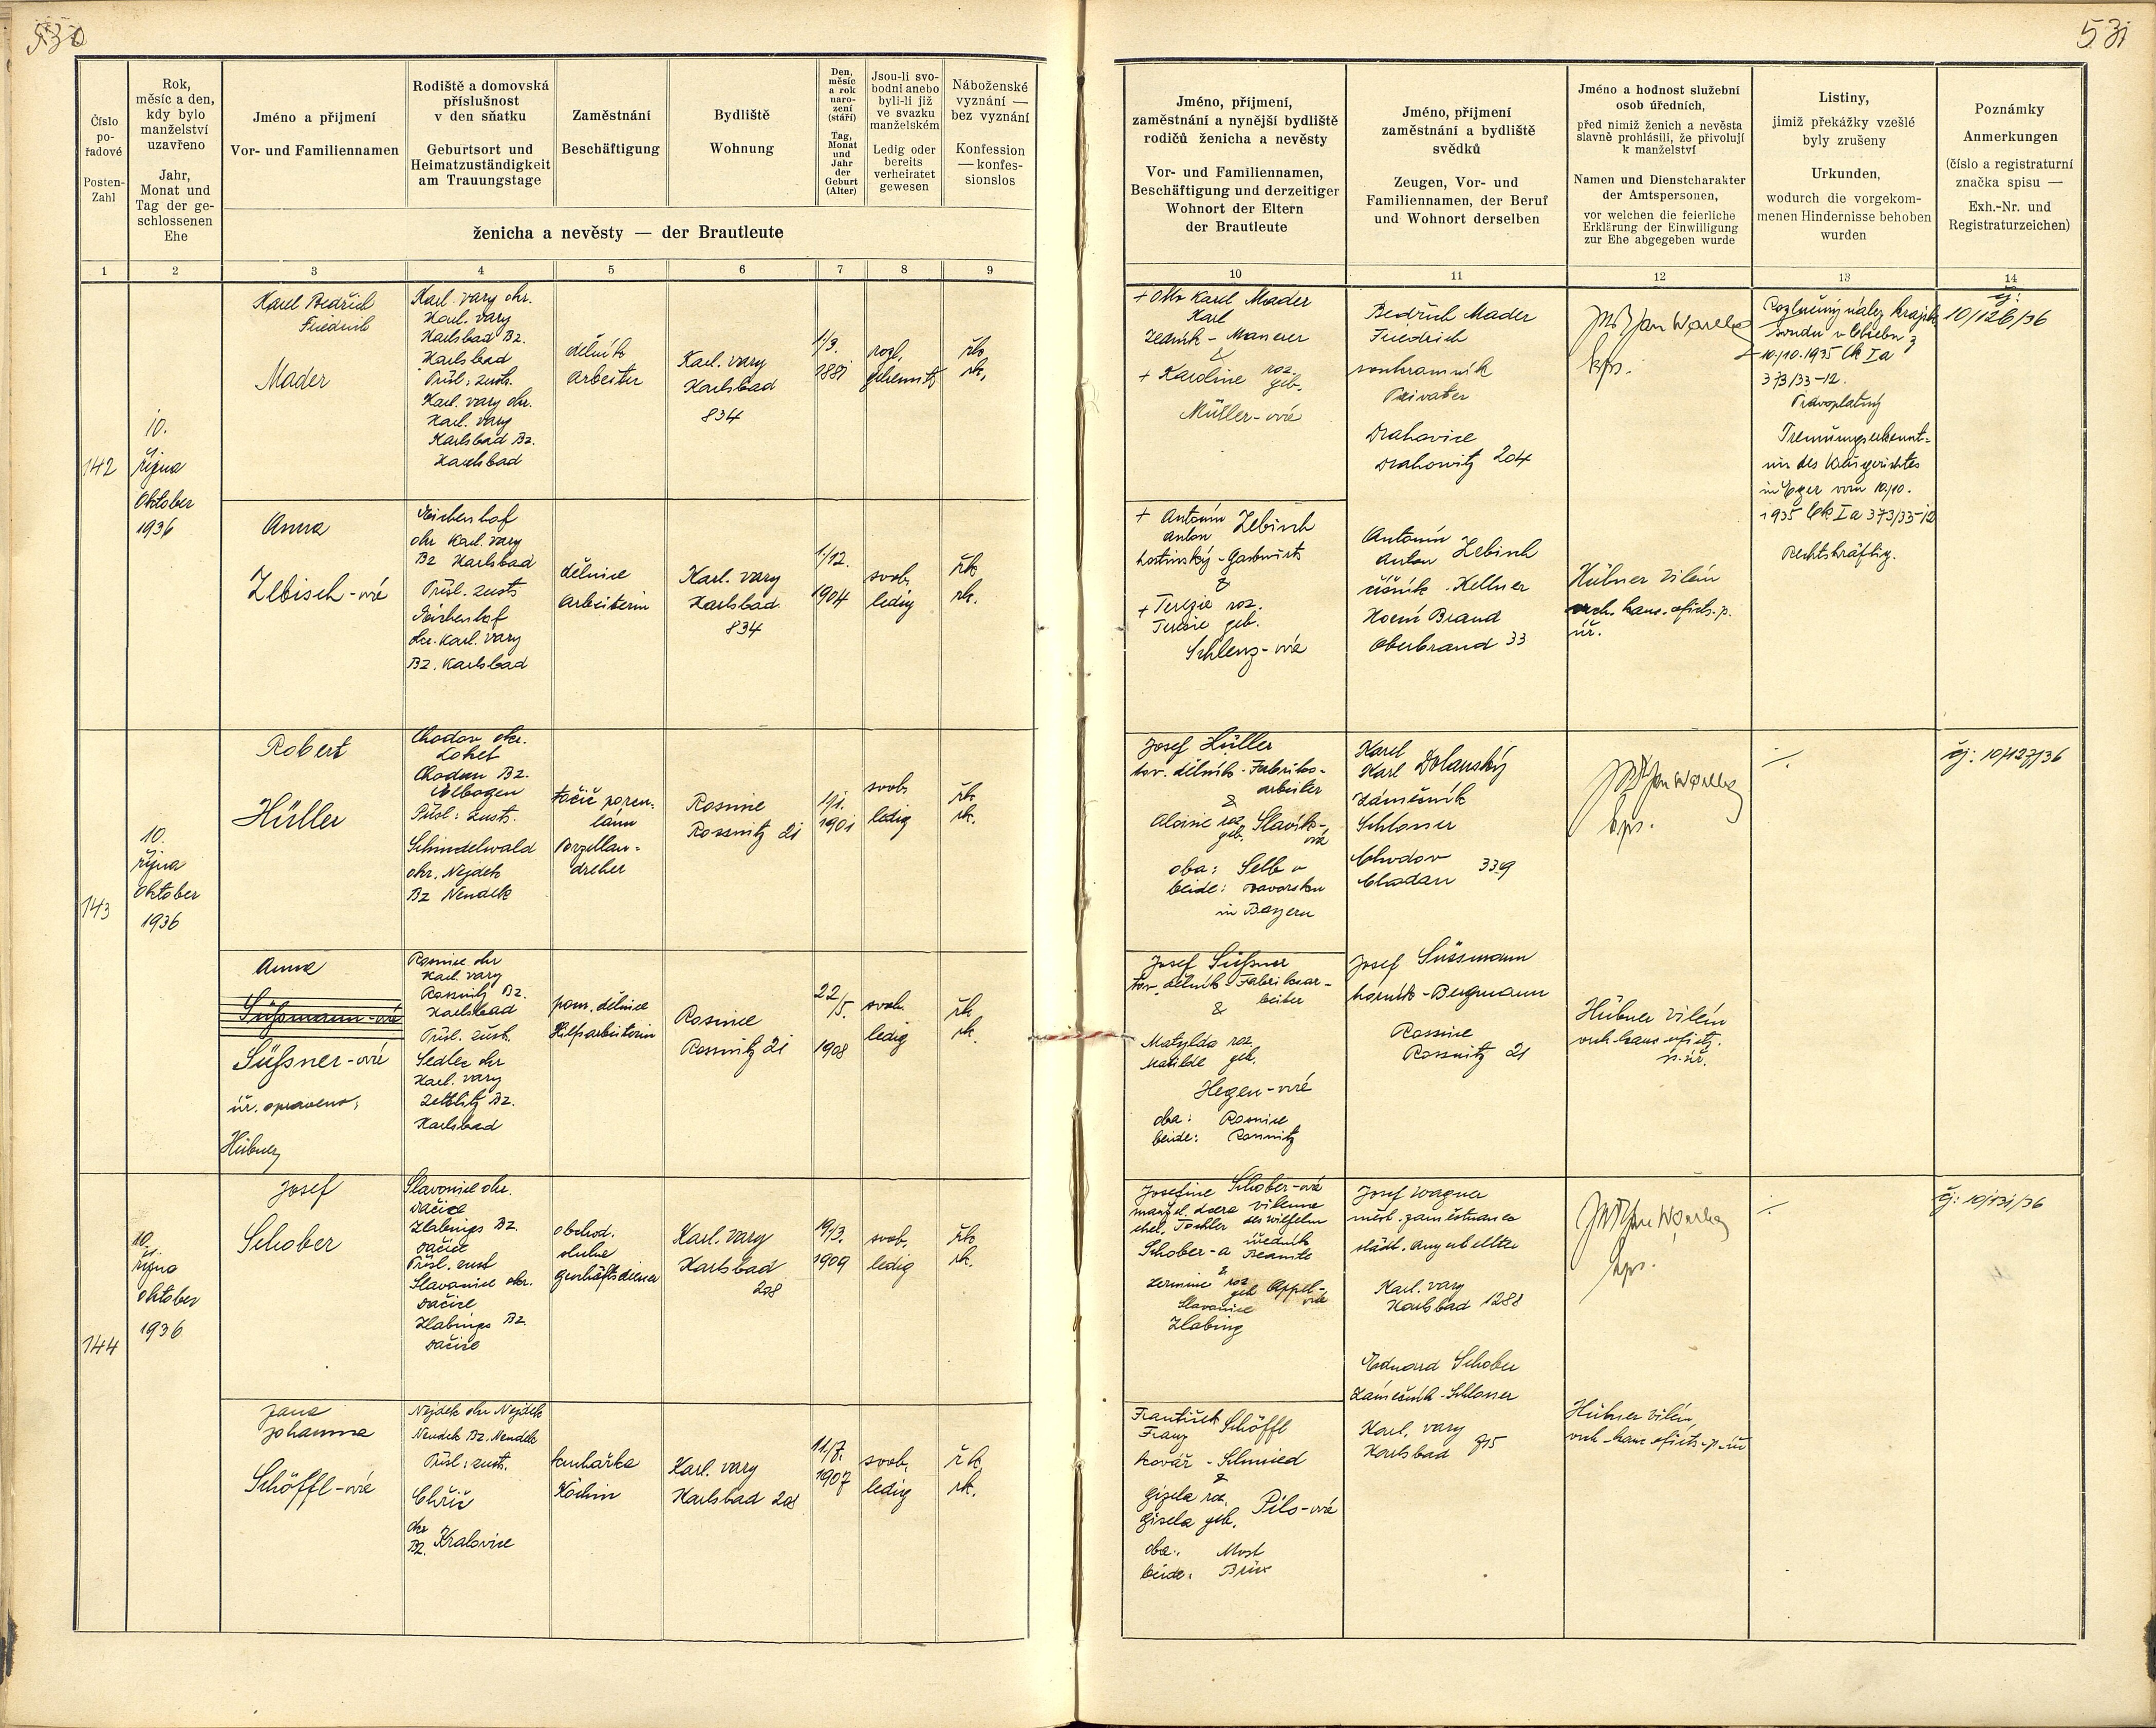 530
531
Číslo pořadové
Posten-Zahl
Rok, měsíc a den, kdy bylo manželství uzavřeno
Jahr, Monat und Tag der geschlossenen Ehe
Jméno a přijmení
Vor- und Familiennamen
Rodiště a domovská příslušnost v den sňatku
Geburtsort und Heimatzuständigkeit am Trauungstage
Zaměstnání
Beschäftigung
Bydliště
Wohnung
Den, měsíc a rok narození (stáří)
Tag, Monat und Jahr der Geburt (Alter)
Jsou-li svobodni anebo byli-li již ve svazku manželském
Ledig oder bereits verheiratet gewesen
Náboženské vyznání — bez vyznání
Konfession — konfessionslos
ženicha a nevěsty — der Brautleute
Jméno, příjmení, zaměstnání a nynější bydliště rodičů ženicha a nevěsty
Vor- und Familiennamen, Beschäftigung und derzeitiger Wohnort der Eltern der Brautleute
Jméno, příjmení zaměstnání a bydliště svědků
Zeugen, Vor- und Familiennamen, der Beruf und Wohnort derselben
Jméno a hodnost služební osob úředních,
před nimiž ženich a nevěsta slavně prohlásili, že přivolují k manželství
Namen und Dienstcharakter der Amtspersonen,
vor welchen die feierliche Erklärung der Einwilligung zur Ehe abgegeben wurde
Listiny,
jimiž překážky vzešlé byly zrušeny
Urkunden,
wodurch die vorgekommenen Hindernisse behoben wurden
Poznámky
Anmerkungen
(číslo a registraturní značka spisu —
Exh.-Nr. und Registraturzeichen)
1 2 3 4 5 6 7 8 9 10 11 12 13 14
142
10.
října
Oktober
1936
Karel Bedřich
Friedrich
Mader
Karl. vary okr.
Karl. vary
Karlsbad Bz.
Karlsbad
Přísl: zust.
Karl. vary okr.
Karl. vary
Karlsbad Bz.
Karlsbad
dělník
Arbeiter
Karl. vary
Karlsbad
834
1/9.
1881
rozl.
getrennt
řk
rk.
+ Otto Karel Mader
Karl
Zedník - Maurer
&
+ Karoline roz. geb.
Müller-ová
Bedřich Mader
Friedrich
soukromník
Privater
Drahovice
Drahowitz 204
kps.
Rozlučný nález krajsk.
soudu v Chebu z
10./10. 1935 Ck Ia
373/33-12.
Pravoplatný
Trennungserkennt-
nis des Kreisgerichtes
in Eger vom 10./10.
1935 Ck Ia 373/33-12
Rechtskräftig.
čj:
10/126/36
Anna
Zebisch-ová
Aichenhof
okr Karl. vary
Bz Karlsbad
Přísl. zust
Aichenhof
okr. Karl. vary
Bz. Karlsbad
dělnice
Arbeiterin
Karl. vary
Karlsbad
834
1/12.
1904
svob.
ledig
řk
rk.
+ Antonín Zebisch
Anton
hostinský - Gastwirt
&
+ Terezie roz.
Teresie geb.
Schlenz-ová
Antonín
Anton Zebisch
číšník - Kellner
Horní Brand
Oberbrand 33
Hübner Vilém
vrch. kanc. ofic. p.
úř.
143
10.
října
Oktober
1936
Robert
Hüller
Chodov okr.
Loket
Chodau Bz.
Elbogen
Přísl: zust.
Schindelwald
okr. Nejdek
Bz Neudek
točič porcu-
lánu
Porzellan-
dreher
Rosnice
Rossnitz 21
1/1.
1901
svob.
ledig
řk
rk.
Josef Hüller
tov. dělník - Fabriks-
arbeiter
&
Aloisie roz. geb. Slavík-
ová
oba: Selb v
beide: Bavorsku
in Bayern
Karel
Karl Dolanský
Zámečník
Schlosser
Chodov
Chodau 339
kps.
čj: 10/127/36
Anna
Süßmann-ová
Süßner-ová
úř. opraveno:
Hübner
Rosnice okr
Karl. vary
Rossnitz Bz.
Karlsbad
Přísl. zust.
Sedlec okr
Karl. vary
Zettlitz Bz.
Karlsbad
pom. dělnice
Hilfsarbeiterin
Rosnice
Rossnitz 21
22/5.
1908
svob.
ledig
řk
rk.
Josef Süßner
tov. dělník Fabriksar-
beiter
&
Matylda roz.
Matilde geb.
Hegen-ová
oba: Rosnice
beide: Rossnitz
Josef Süssmann
horník - Bergmann
Rosnice
Rossnitz 21
Hübner Vilém
vrch. kanc. ofic.
p. úř.
144
10.
října
Oktober
1936
Josef
Schober
Slavonice okr.
Dačice
Zlabings Bz.
Dačice
Přísl. zust
Slavonice okr.
Dačice
Zlabings Bz.
Dačice
obchod.
sluha
Geschäftsdiener
Karl. vary
Karlsbad
208
19/3.
1909
svob.
ledig
řk
rk.
Josefine Schober-ová
manžel. dcera Viléma
ehel. Tochter des Wilhelm
Schober-a úředník Beamte
&
Hermine roz. geb. Appel-
ová
Slavonice
Zlabing
Josef Wagner
měst. zaměstnanec
städt. Angestellter
Karl. vary
Karlsbad 1288
Eduard Schober
Zámečník - Schlosser
Karl. vary
Karlsbad 715
kps.
čj: 10/131/36
Jana
Johanna
Schöffl-ová
Nejdek okr Nejdek
Neudek Bz. Neudek
Přísl: zust.
Chříč
okr
Bz. Kralovice
kuchařka
Köchin
Karl. vary
Karlsbad 208
11/7.
1907
svob.
ledig
řk
rk.
František
Franz Schöffl
kovář - Schmied
&
Gizela roz.
Gisela geb. Pilo-ová
oba: Most
beide: Brüx
Hübner Vilém,
vrch. kanc. ofic. p. úř